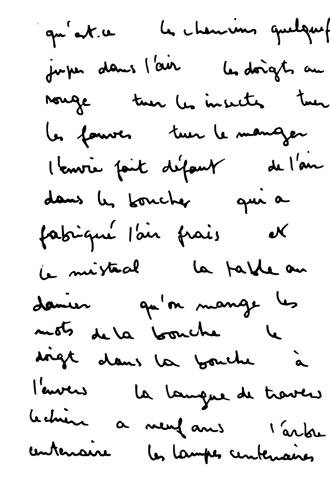 qu'est.ce les chemins quelquef
jupes dans l'air les doigts au
rouge tuer les insectes tuer
les fauves tuer le manger
l'envie fait défaut de l'air
dans les bouches qui a
fabriqué l'air frais et
le mistral la table au
damier qu'on mange les
mots de la bouche le
doigt dans la bouche à
l'envers la langue de travers
le chien a neuf ans l'arbre
centenaire les lampes centenaires